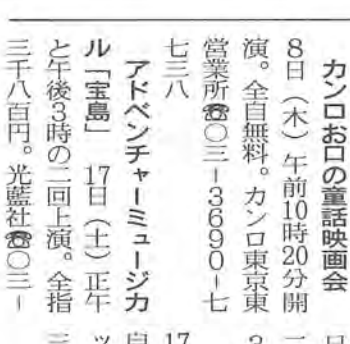 カンロおロの童話映画会
8日（木）午前10時20分開
演。全自無料。カンロ東京東
営業所☎〇三ー3690ー七
七三八
アドベンチャーミュージカ
ル「宝島」　17日（土）正午
と午後3時の二回上演。全指
三千八百円。光藍社☎〇三ー